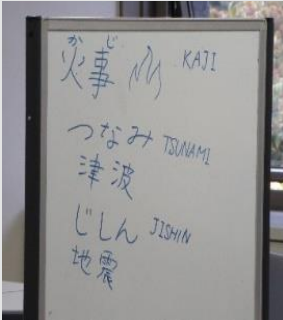 かじ
火事 KAJI
つなみ TSUNAMI
津波
じしん JISHIN
地震